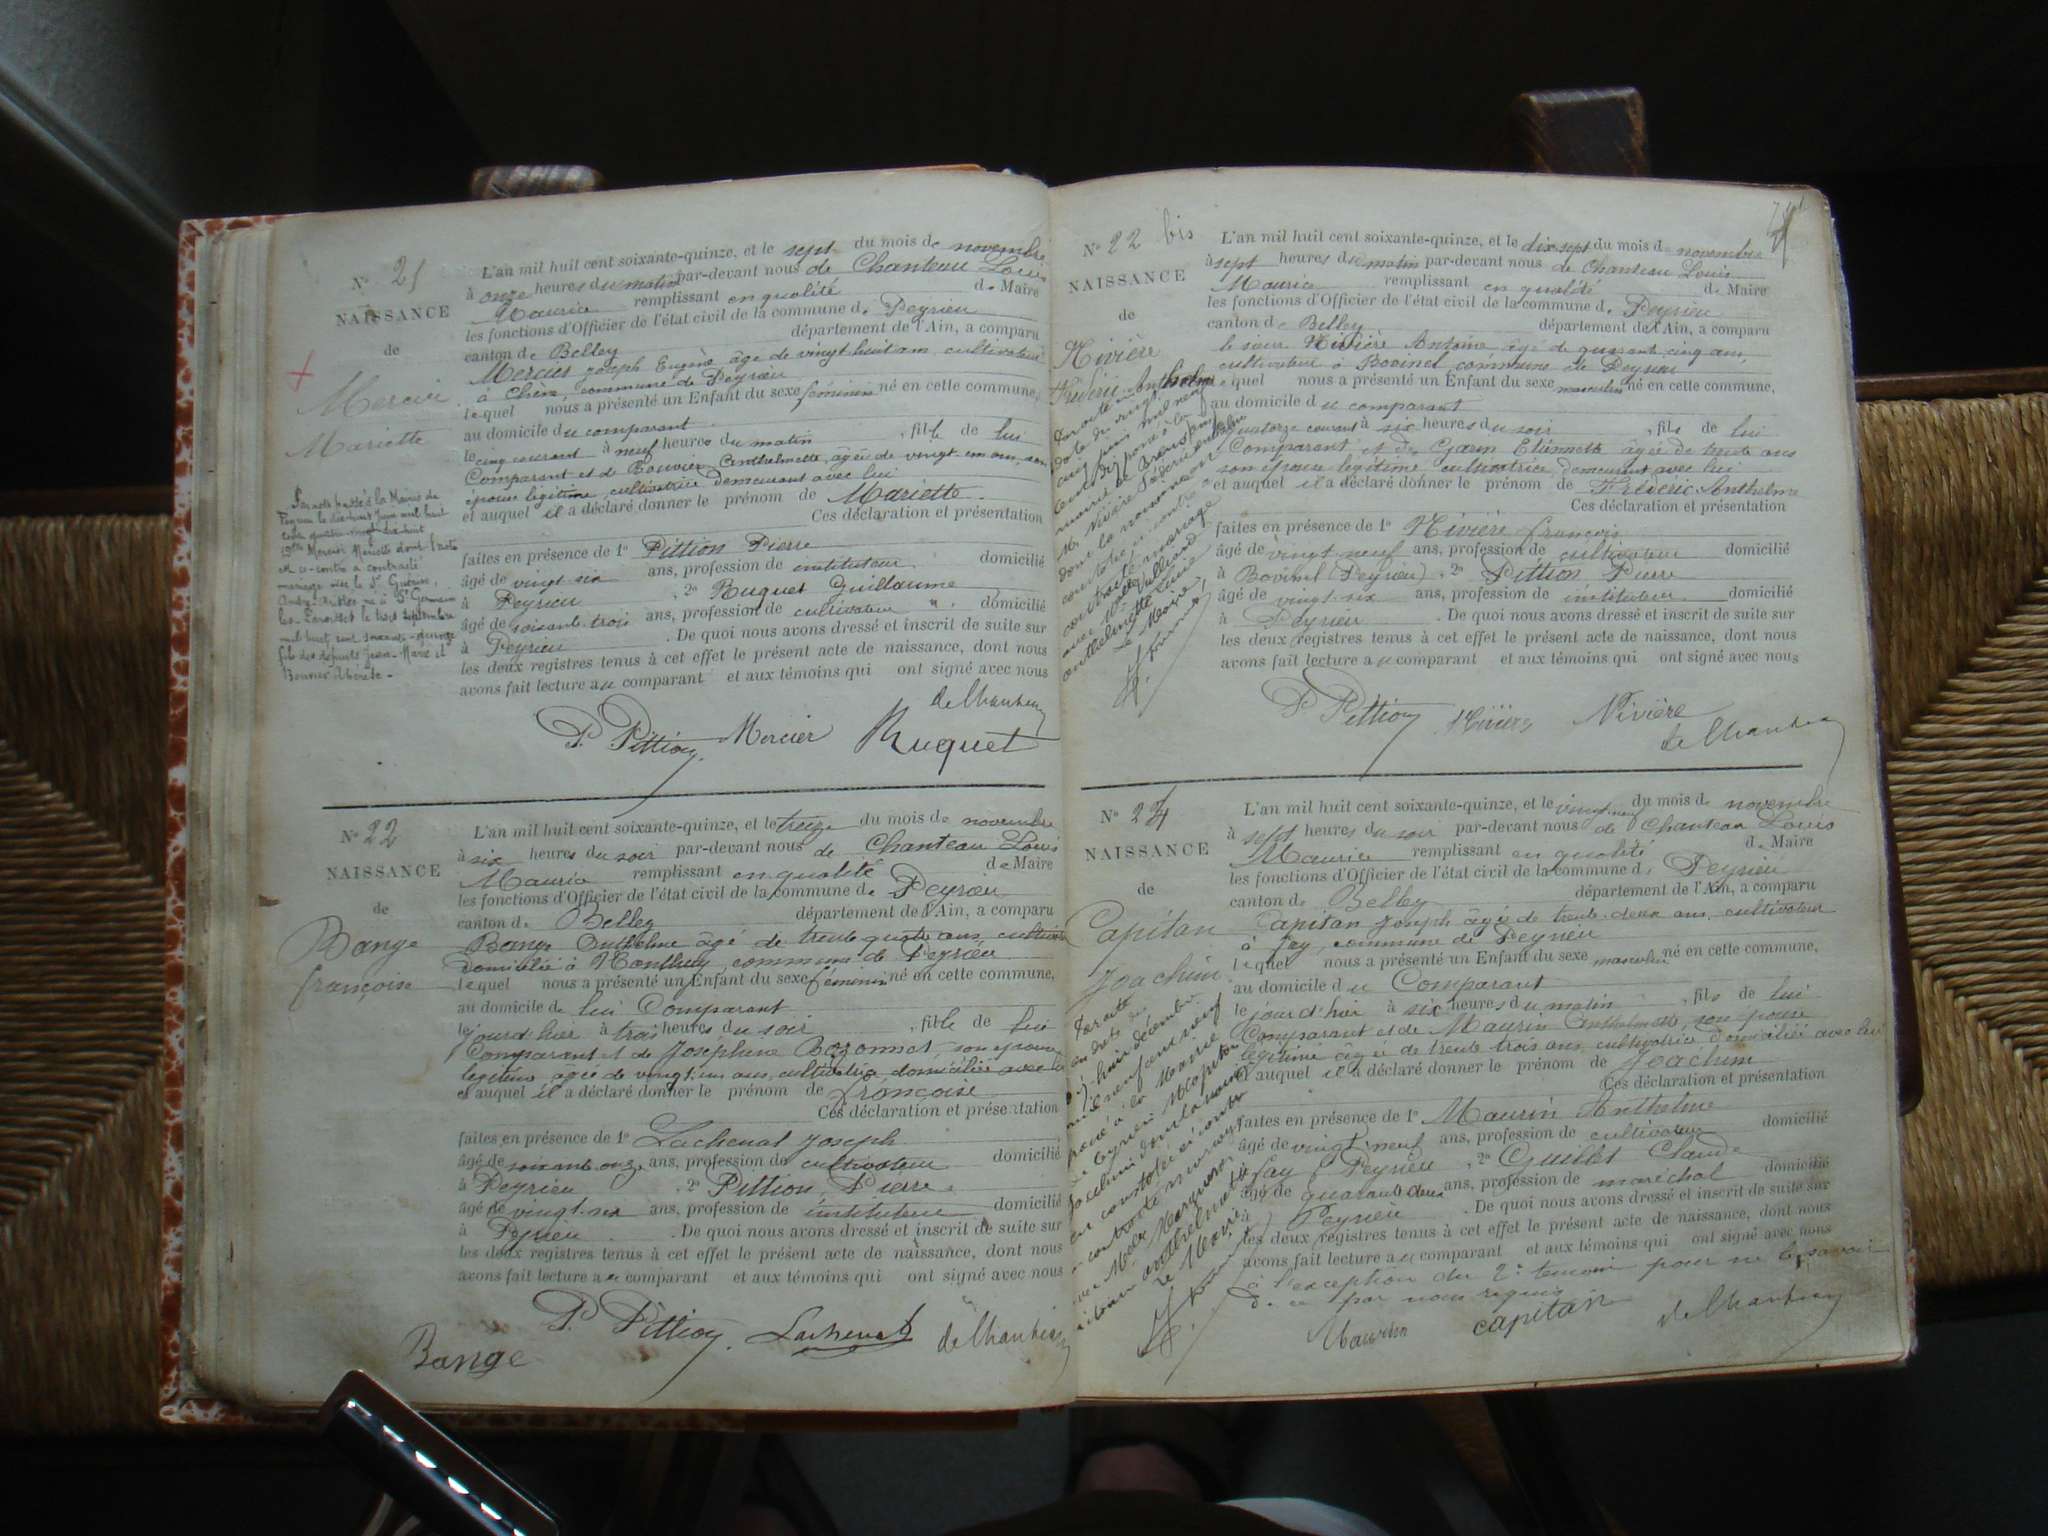 N° 21
NAISSANCE
de
Mercier
Mariette
L'an mil huit cent soixante-quinze, et le sept du mois de novembre
à onze heures du matin par-devant nous de Chanteau Louis
Maurice remplissant en qualité de Maire
les fonctions d'Officier de l'état civil de la commune de Peyrieu
canton de Belley département de l'Ain, a comparu
Mercier Joseph Eugène âgé de vingt huit ans cultivateur
à Chêne, commune de Peyrieu
lequel nous a présenté un Enfant du sexe féminin né en cette commune,
au domicile du comparant
le cinq courant à neuf heures du matin, fille de lui
Comparant et de Bouvier Anthelmette, âgée de vingt un ans, son
épouse légitime, cultivatrice demeurant avec lui
et auquel il a déclaré donner le prénom de Mariette.
Ces déclaration et présentation
faites en présence de 1° Pittion Pierre
âgé de vingt six ans, profession de instituteur domicilié
à Peyrieu, 2° Ruguet Guillaume
âgé de soixante trois ans, profession de cultivateur domicilié
à Peyrieu. De quoi nous avons dressé et inscrit de suite sur
les deux registres tenus à cet effet le présent acte de naissance, dont nous
avons fait lecture au comparant et aux témoins qui ont signé avec nous
Par acte passé à la Mairie de
Peyrieu le dix-huit Juin mil huit
cent quatre-vingt dix-huit
Mercier Mariette dont l'acte
est ci-contre a contracté
mariage avec le Sr
né à St Germain
les Paroisses le trois septembre
mil huit cent soixante
fils des défunts Jean-Marie et
Bouvier
de Chanteau
P. Pittion Mercier Ruguet
N° 22
NAISSANCE
de
Bange
françoise
L'an mil huit cent soixante-quinze, et le treize du mois de novembre
à six heures du soir par-devant nous de Chanteau Louis
Maurice remplissant en qualité de Maire
les fonctions d'Officier de l'état civil de la commune de Peyrieu
canton de Belley département de l'Ain, a comparu
Bange Anthelme âgé de trente quatre ans, cultivateur
domicilié à commune de Peyrieu
lequel nous a présenté un Enfant du sexe féminin né en cette commune,
au domicile de lui Comparant
le jour d'hier à trois heures du soir, fille de lui
Comparant et de Joséphine Bozonnet, son épouse
légitime âgée de vingt un ans, cultivatrice domiciliée avec lui
et auquel il a déclaré donner le prénom de françoise
Ces déclaration et présentation
faites en présence de 1° Lachenal Joseph
âgé de soixante onze ans, profession de cultivateur domicilié
à Peyrieu, 2° Pittion Pierre
âgé de vingt-six ans, profession de instituteur domicilié
à Peyrieu. De quoi nous avons dressé et inscrit de suite sur
les deux registres tenus à cet effet le présent acte de naissance, dont nous
avons fait lecture au comparant et aux témoins qui ont signé avec nous
P. Pittion Lachenal de Chanteau
Bange
N° 22 bis
NAISSANCE
de
Nivière
Fréderic Anthelme
L'an mil huit cent soixante-quinze, et le dix sept du mois de novembre
à sept heures du matin par-devant nous de Chanteau Louis
Maurice remplissant en qualité de Maire
les fonctions d'Officier de l'état civil de la commune de Peyrieu
canton de Belley département de l'Ain, a comparu
le sieur Nivière Antoine âgé de quarante cinq ans,
cultivateur à Bovinel commune de Peyrieu
lequel nous a présenté un Enfant du sexe masculin né en cette commune,
au domicile du comparant
quatorze courant à six heures du soir, fils de lui
Comparant et de Garin Etiennette âgée de trente ans
son épouse légitime cultivatrice demeurant avec lui
et auquel il a déclaré donner le prénom de Fréderic Anthelme
Ces déclaration et présentation
faites en présence de 1° Nivière françois
âgé de vingt neuf ans, profession de cultivateur domicilié
à Bovinel (Peyrieu), 2° Pittion Pierre
âgé de vingt-six ans, profession de instituteur domicilié
à Peyrieu. De quoi nous avons dressé et inscrit de suite sur
les deux registres tenus à cet effet le présent acte de naissance, dont nous
avons fait lecture au comparant et aux témoins qui ont signé avec nous
Par acte
contracté mariage
Le Maire
P. Pittion Nivière Nivière
de Chanteau
N° 24
NAISSANCE
de
Capitan
Joachim
L'an mil huit cent soixante-quinze, et le vingt neuf du mois de novembre
à sept heures du soir par-devant nous de Chanteau Louis
Maurice remplissant en qualité de Maire
les fonctions d'Officier de l'état civil de la commune de Peyrieu
canton de Belley département de l'Ain, a comparu
Capitan Joseph âgé de trente-deux ans, cultivateur
à Fay, commune de Peyrieu
lequel nous a présenté un Enfant du sexe masculin né en cette commune,
au domicile du Comparant
le jour d'hier à six heures du matin, fils de lui
Comparant et de Maurin Anthelmette, son épouse
légitime âgée de trente trois ans, cultivatrice, domiciliée avec lui
et auquel il a déclaré donner le prénom de Joachim
Ces déclaration et présentation
faites en présence de 1° Maurin Anthelme
âgé de vingt neuf ans, profession de cultivateur domicilié
à Fay (Peyrieu, 2° Guillet Claude
âgé de quarante deux ans, profession de maréchal domicilié
à Peyrieu. De quoi nous avons dressé et inscrit de suite sur
les deux registres tenus à cet effet le présent acte de naissance, dont nous
avons fait lecture au comparant et aux témoins qui ont signé avec nous
à l'exception du 2e témoin pour ne le savoir
de ce par nous requis
Par acte
Le Maire
Maurin Capitan de Chanteau